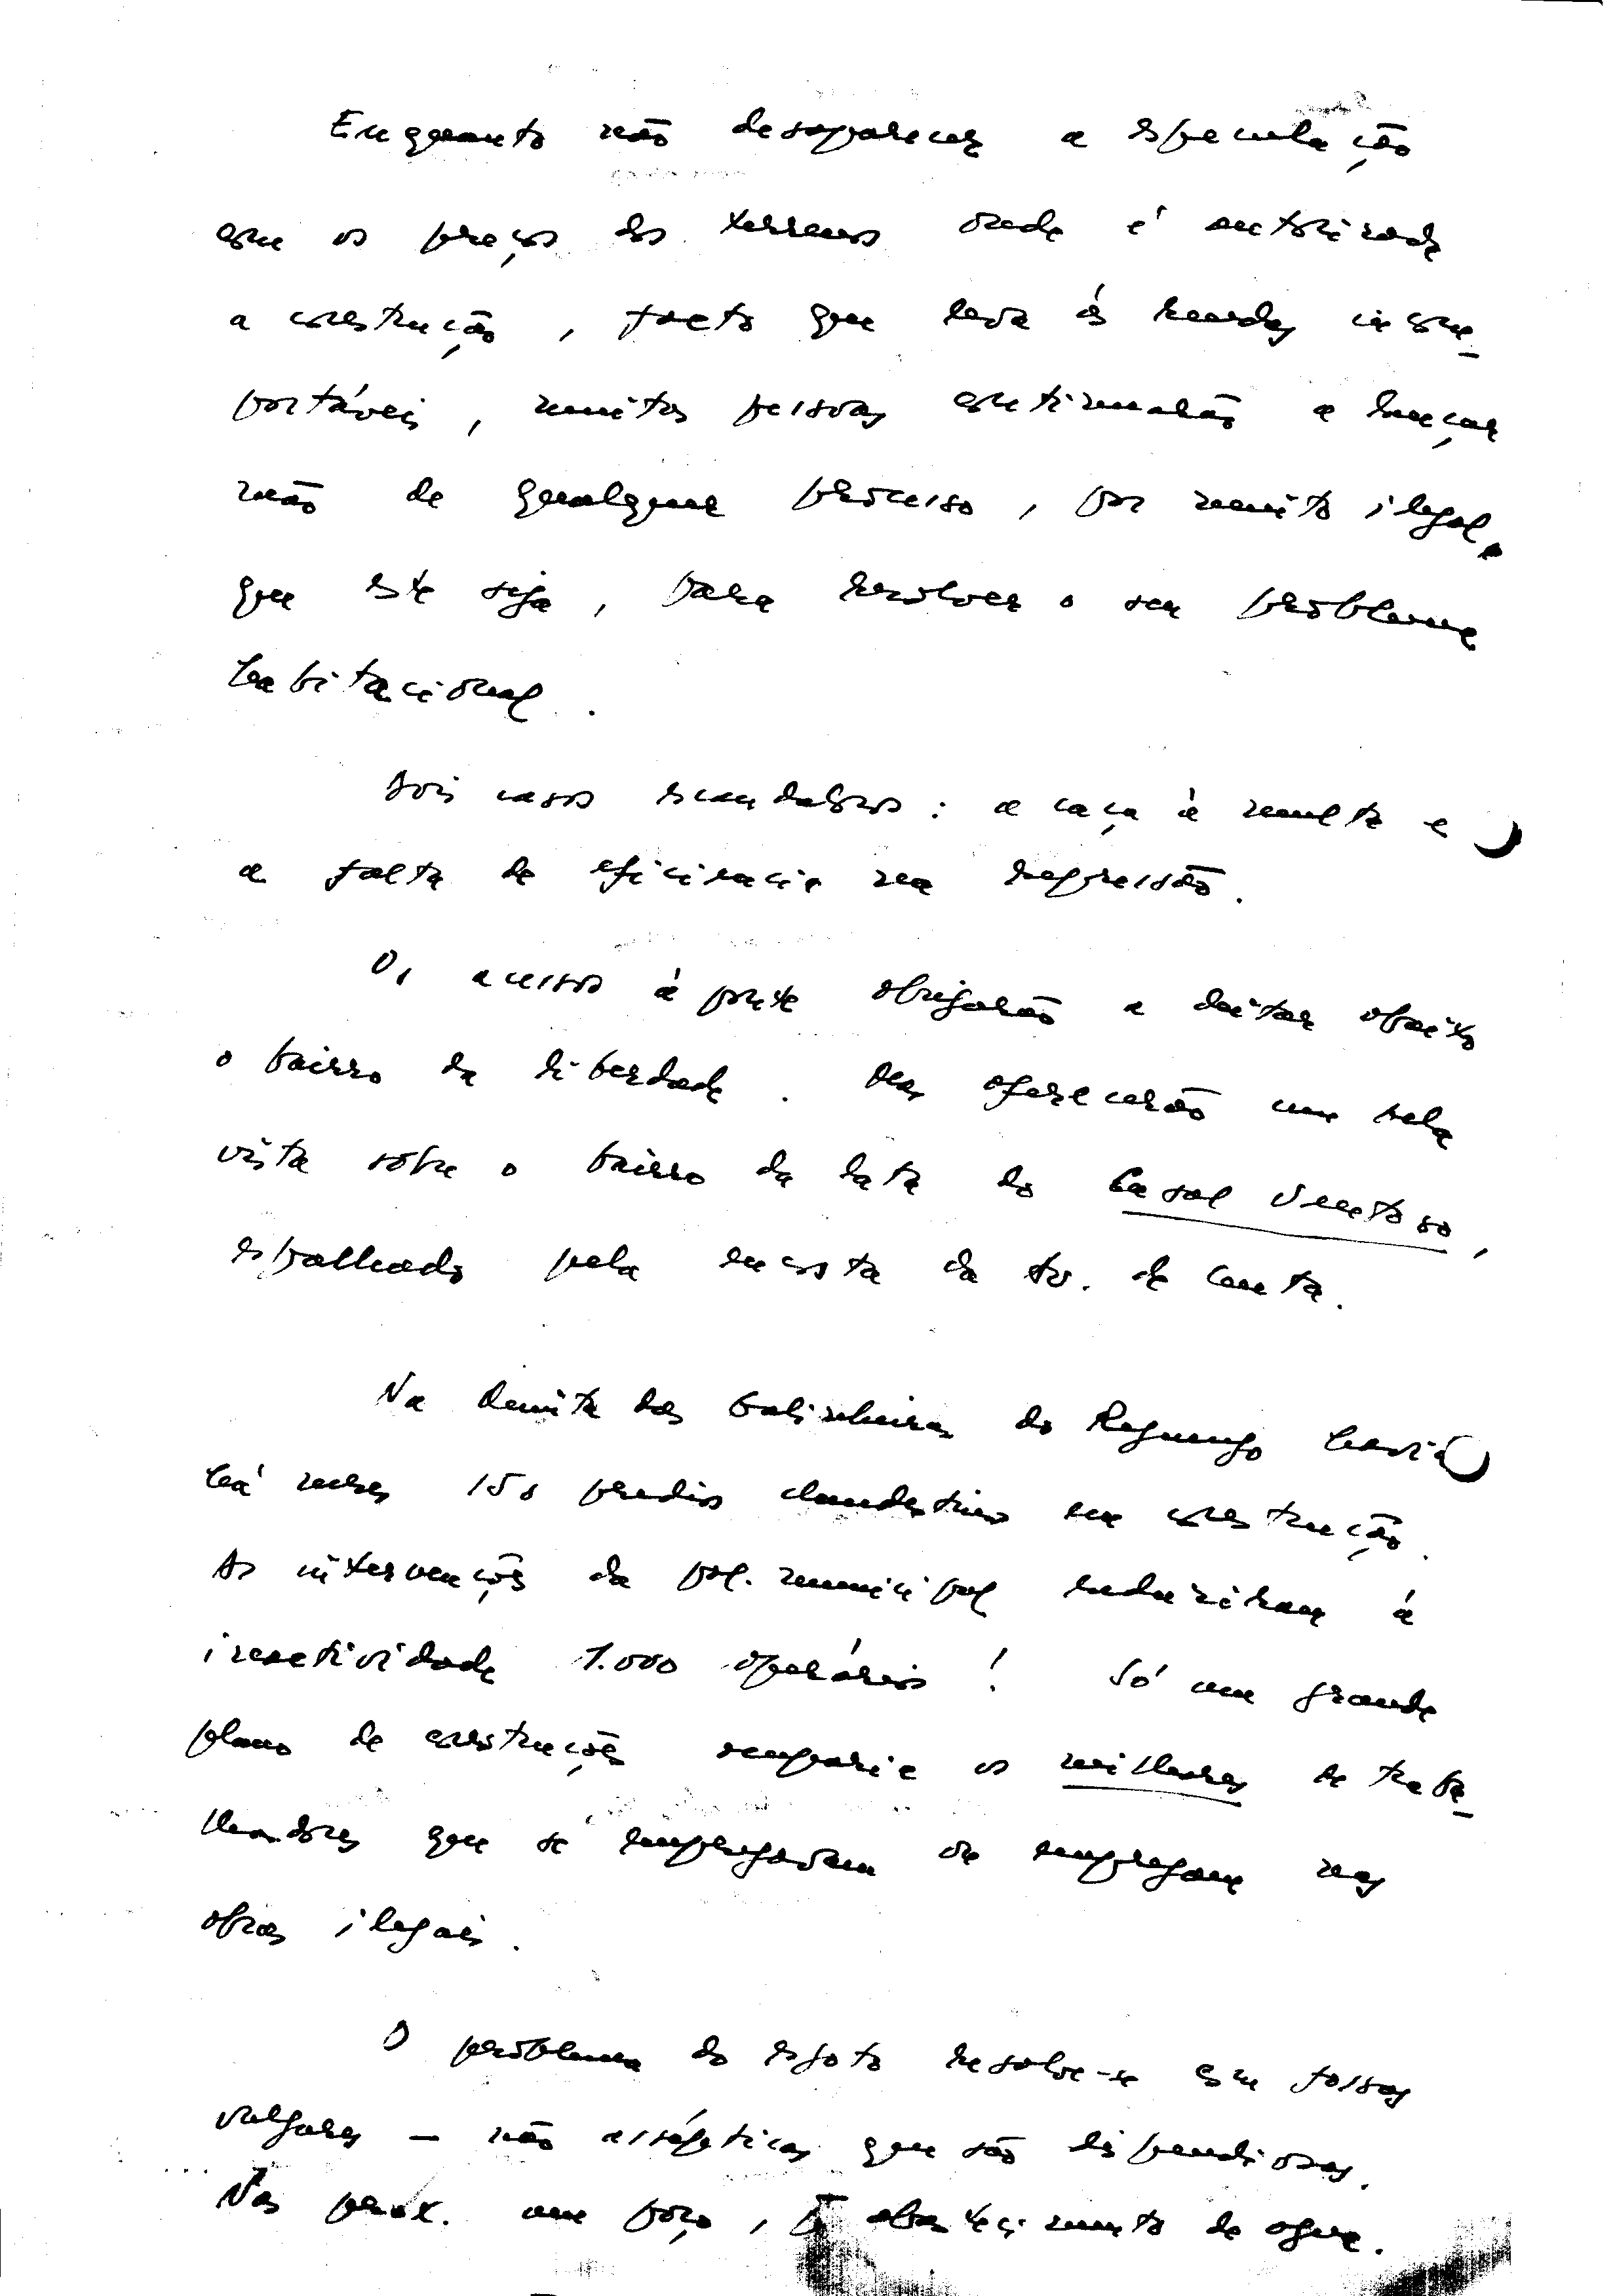 Enquanto não desaparecer a especulação
com os preços dos terrenos onde é autorizada
a construção, facto que leva ás rendas incom-
portáveis, muitas pessoas continuarão a lançar
mão de qualquer processo, por muito ilegal
que este seja, para resolver o seu problema
habitacional.
Dois casos escandalosos: a caça à multa e
a falta de eficiencia na repressão.
Os acessos à ponte obrigarão a deitar abaixo
o bairro da Liberdade. Mas oferecerão uma bela
vista sobre o bairro da lata do Casal Ventoso,
espalhado pela encosta da Av. de Ceuta.
Na Quinta das do Reguengo havia
há meses 150 predios clandestinos em construção.
As intervenções da pol. municipal reduziram à
inactividade 1.000 operários! Só um grande
plano de construções ocuparia os milhares de traba-
lhadores que se empregavam ou empregam nas
obras ilegais.
O problema do esgoto resolve-se com fossas
vulgares — não assépticas que são dispendiosas.
Nas prox. um poço, p. abastecimento de agua.